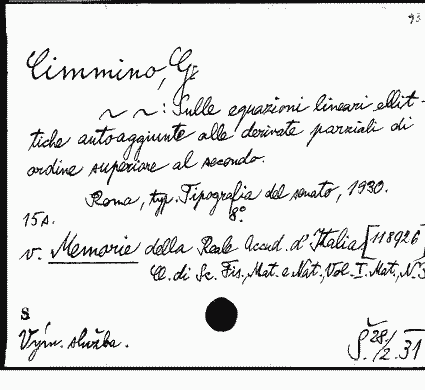 93
Cimmino, G.
~ ~ : Sulle equazioni lineari ellit-
tiche autoaggiunte alle derivate parziali di
ordine superiore al secondo.
Roma, typ. Tipografia del senato, 1930.
15 s. 8°.
v. Memorie della Reale Accad. d'Italia [118926]
Cl. di Sc. Fis., Mat. e Nat., Vol. I. Mat., N. 3
S
Vým. služba. Š 28/2. 31